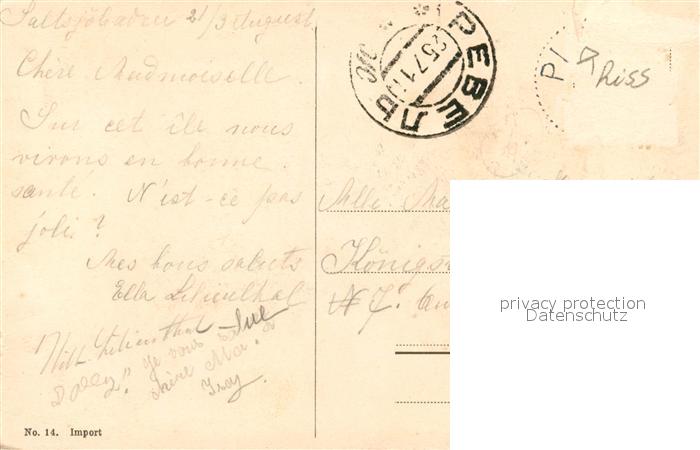 Saltsjöbaden 21/3 August
Chère Madmoiselle.
Sur cet île nous
virons en bonne
santé. N'ist-ce pas
jolie?
Mes bons saluts
Ella Lilienthal
Will. Lilienthal
"Dolly". Je vous
chère
No. 14. Import
РЕВЕЛЬ
25 7 1
PI
Riss
Mlle. Ma
Königs
N 7.
privacy protection
Datenschutz